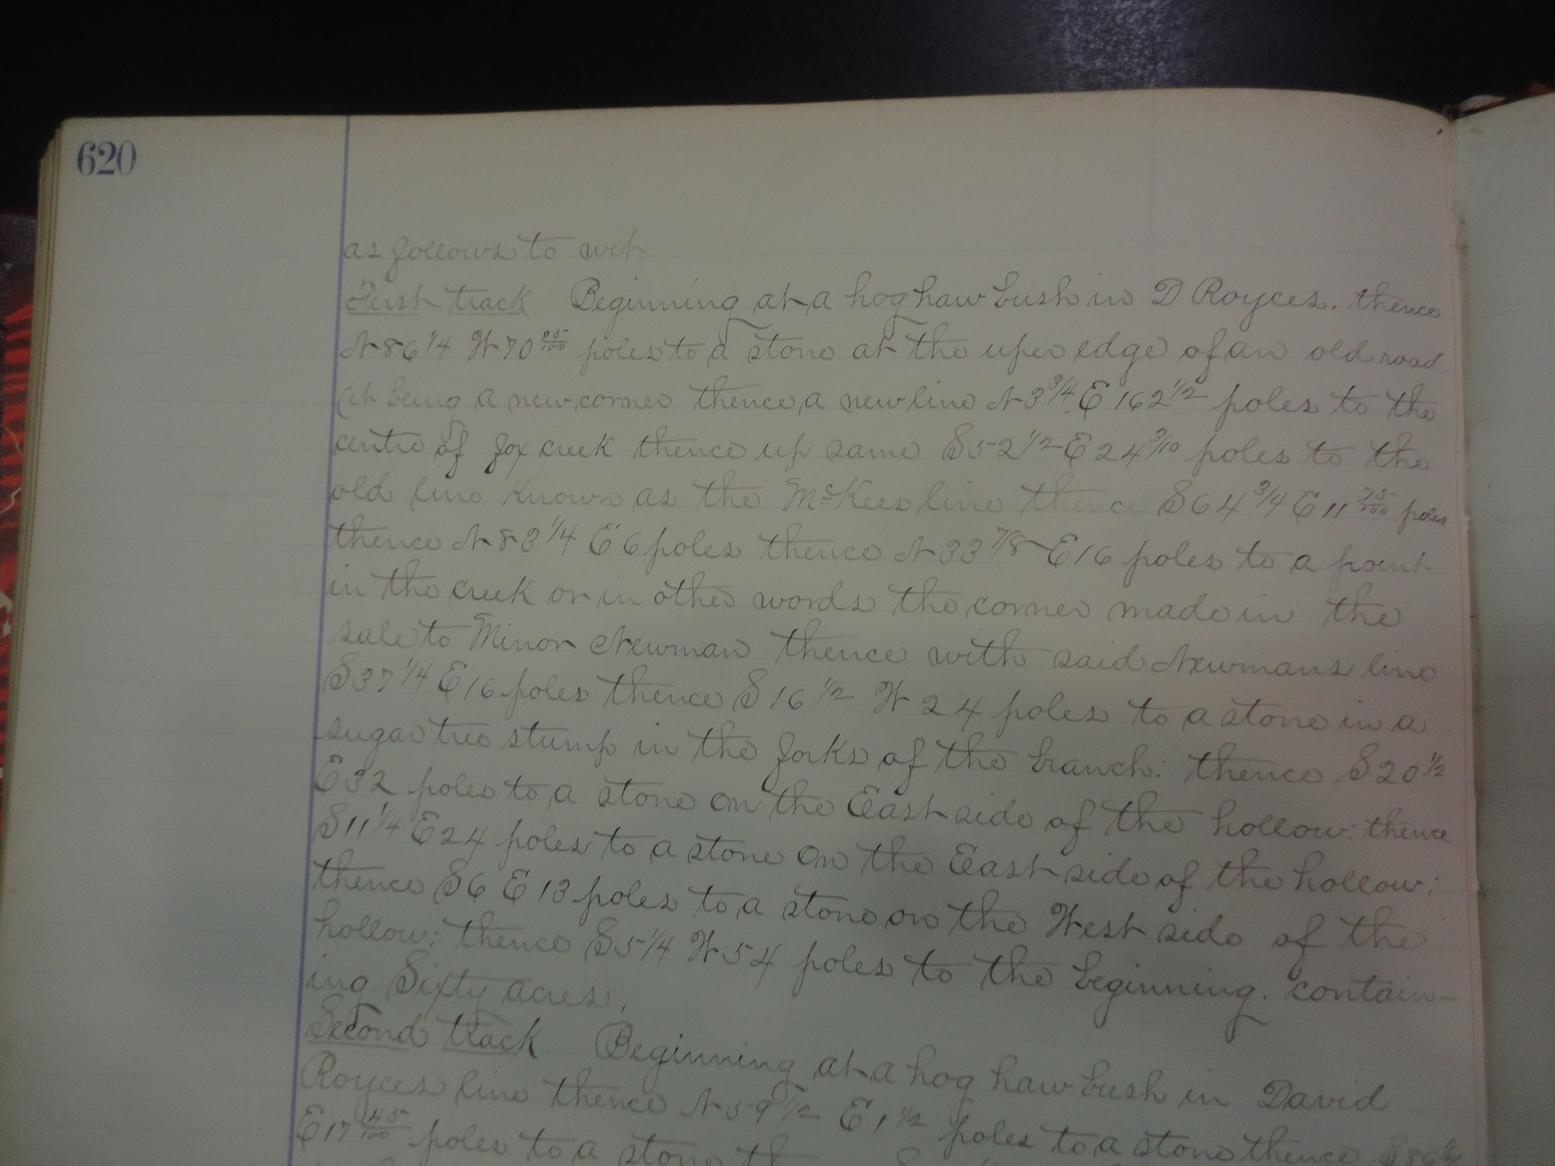 620
as follows to wit
First track. Beginning at a hog haw bush in D Royces. thence
N 86 1/4 W 70 05/100 poles to a stone at the uper edge of an old road
(it being a new corner thence a new line N 3 3/4 E 162 1/2 poles to the
centre of fox creek thence up same S 52 1/2 E 24 3/10 poles to the
old line known as the McKees line thence S 64 3/4 E 11 75/100 poles
thence N 83 1/4 E 6 poles thence N 33 7/8 E 16 poles to a point
in the creek or in other words the corner made in the
sale to Minor Newman thence with said Newmans line
S 37 1/4 E 16 poles thence S 16 1/2 W 24 poles to a stone in a
sugar tree stump in the forks of the branch: thence S 20 1/2
E 32 poles to a stone on the East side of the hollow: thence
S 11 1/4 E 24 poles to a stone on the East side of the hollow;
thence S 6 E 13 poles to a stone on the West side of the
hollow; thence S 5 1/4 W 54 poles to the beginning. contain-
ing Sixty acres.
Second track. Beginning at a hog haw bush in David
Royces line thence N 59 1/2 E 1 1/2 poles to a stone thence
E 17 45/100 poles to a stone